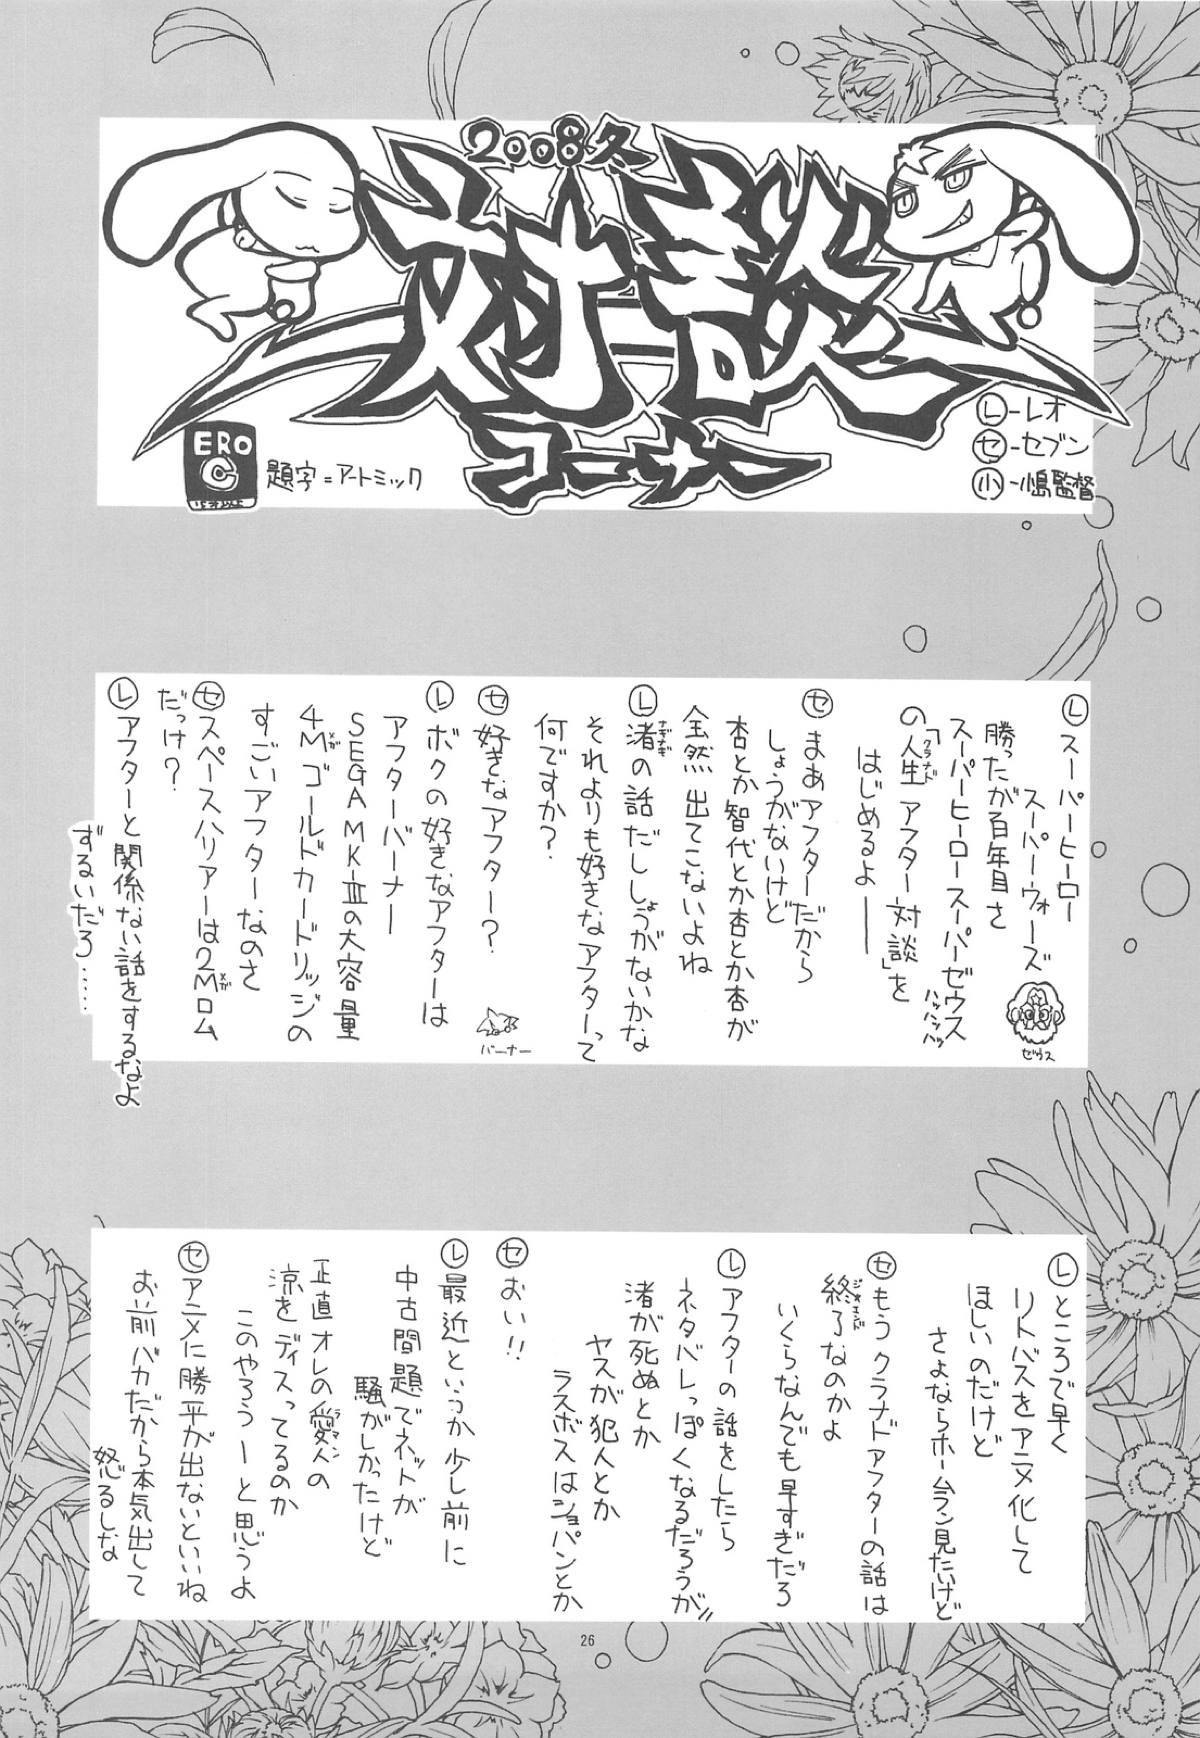 2008冬
対談
コーナー
ERO
C
題字=アートミック
レ-レオ
セ-セブン
小-小嶋監督
レ スーパーヒーロー
スーパーウォーズ
勝ったが百年目さ
スーパーヒーロースーパーゼウス
ハッハッハッ
の「人生 アフター対談」を
クラナド
はじめるよ――
ゼウス
セ まあアフターだから
しょうがないけど
杏とか智代とか杏とか杏が
全然出てこないよね
レ 渚の話だししょうがないかな
ナギナギ
それよりも好きなアフターって
何ですか?
セ 好きなアフター?
バーナー
レ ボクの好きなアフターは
アフターバーナー
SEGA MK-Ⅲの大容量
4Mゴールドカードリッジの
メガ
すごいアフターなのさ
セ スペースハリアーは2Mロム
メガ
だっけ?
レ アフターと関係ない話をするなよ
ずるいだろ……
レ ところで早く
リトバスをアニメ化して
ほしいのだけど
さよならホームラン見たいけど
セ もうクラナドアフターの話は
終了なのかよ
ジ・エンド
いくらなんでも早すぎだろ
レ アフターの話をしたら
ネタバレっぽくなるだろうが!!
渚が死ぬとか
ヤスが犯人とか
ラスボスはショパンとか
セ おい!!
レ 最近というか少し前に
中古問題でネットが
騒がしかったけど
正直オレの愛人の
ラマン
涼をディスってるのか
このやろうーと思うよ
セ アニメに勝平が出ないといいね
お前バカだから本気出して
怒るしな
26